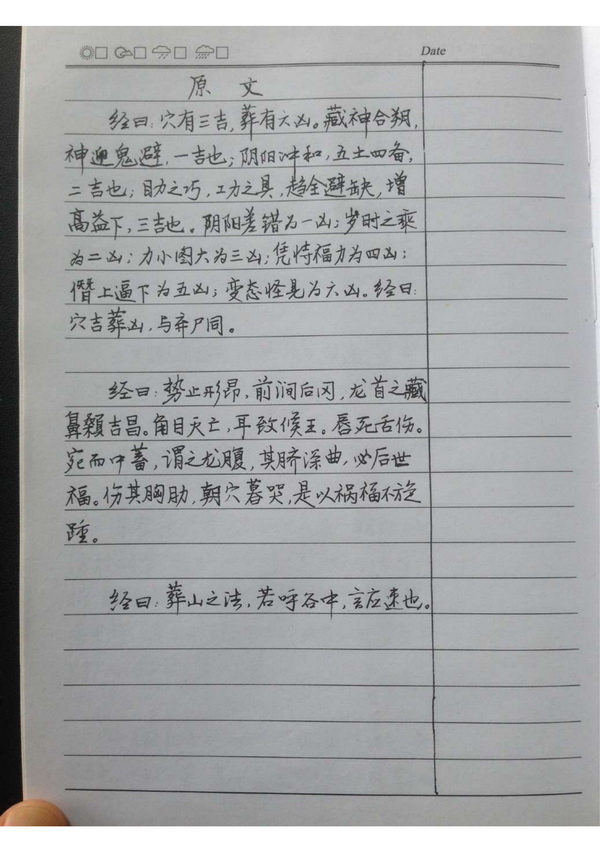 Date
原文
经曰:穴有三吉,葬有六凶。藏神合朔,
神迎鬼避,一吉也;阴阳冲和,五土四备,
二吉也;目力之巧,工力之具,趋全避缺,增
高益下,三吉也。阴阳差错为一凶;岁时之乘
为二凶;力小图大为三凶;凭恃福力为四凶;
僭上逼下为五凶;变态怪见为六凶。经曰:
穴吉葬凶,与弃尸同。
经曰:势止形昂,前涧后冈,龙首之藏
鼻颡吉昌。角目灭亡,耳致候王。唇死舌伤。
宛而中蓄,谓之龙腹,其脐深曲,必后世
福。伤其胸肋,朝穴暮哭,是以祸福不旋
踵。
经曰:葬山之法,若呼谷中,言应速也。